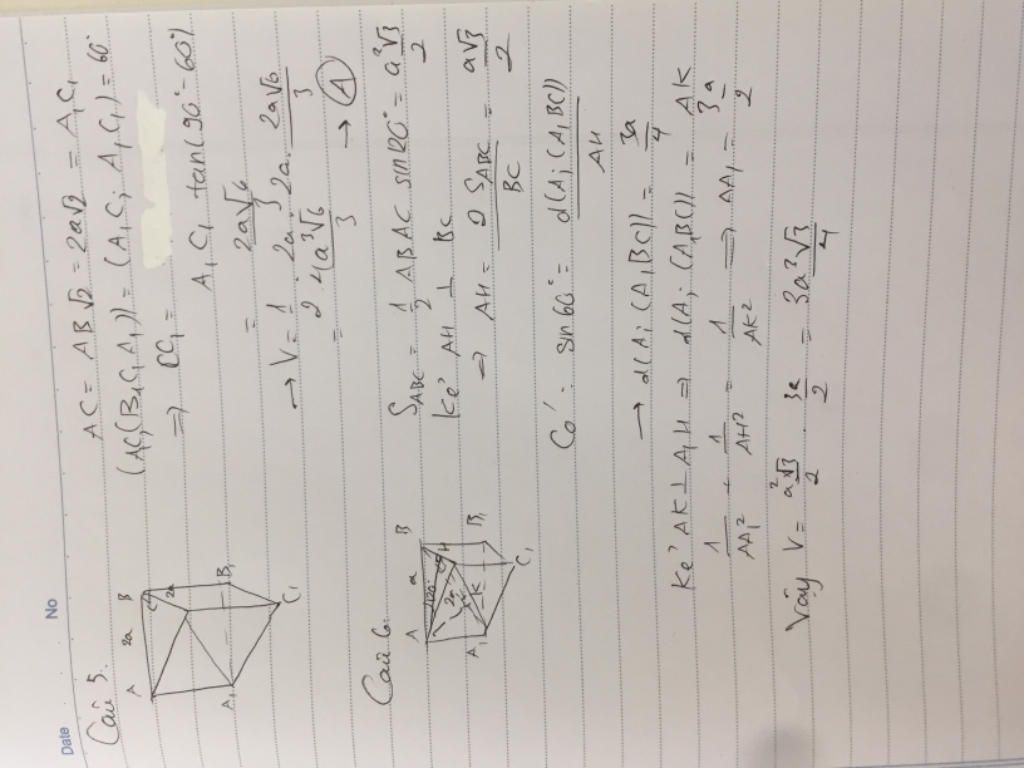 Date No
Câu 5.
A 2a B
2a
A₁ B₁
C₁
AC = AB√2 = 2a√2 = A₁C₁
(AC,(B₁C₁A₁)) = (A₁C; A₁C₁) = 60°
⇒ CC₁ =
A₁C₁ tan(90° - 60°)
= 2a√6 / 3
→ V = 1/2 2a . 2a . 2a√6 / 3
= 4a³√6 / 3 → A
Câu 6.
A a B
120°
2a
H
K
A₁ B₁
C₁
S_ABC = 1/2 AB AC sin120° = a²√3 / 2
Kẻ AH ⊥ BC
⇒ AH = 2 S_ABC / BC = a√3 / 2
Có: sin60° = d(A; (A₁BC)) / AH
→ d(A; (A₁BC)) = 3a / 4
Kẻ AK ⊥ A₁H ⇒ d(A; (A₁BC)) = AK
1/AA₁² + 1/AH² = 1/AK² ⇒ AA₁ = 3a / 2
Vậy V = a²√3 / 2 . 3a / 2 = 3a³√3 / 4